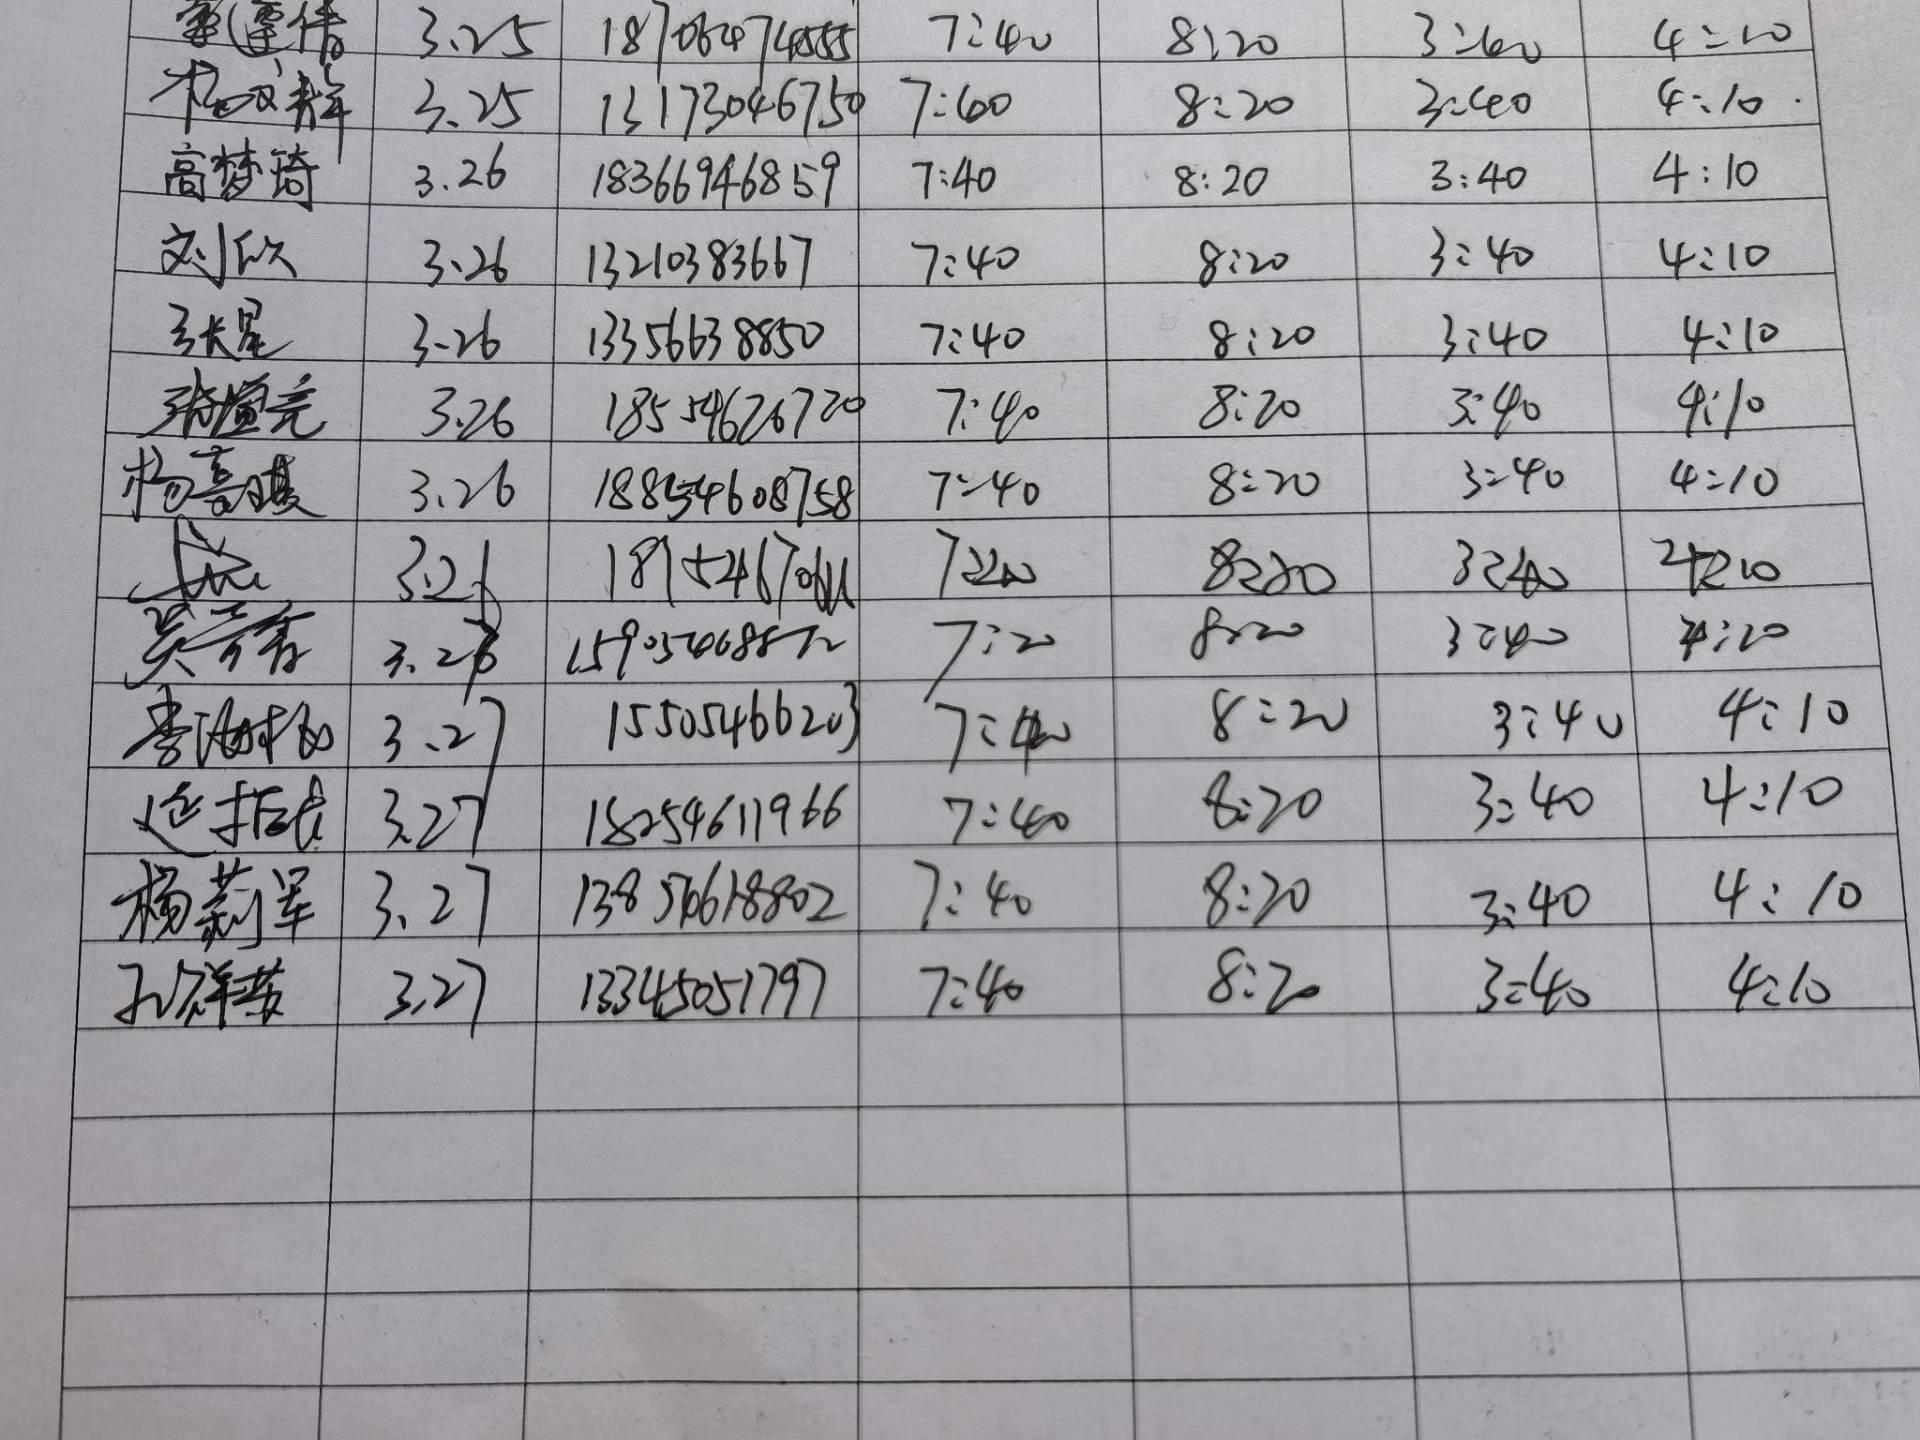 3.25 18706474555 7:40 8:20 3:40 4:10
3.25 13173046750 7:40 8:20 3:40 4:10
高梦琦 3.26 18366946859 7:40 8:20 3:40 4:10
刘欣 3.26 13210383667 7:40 8:20 3:40 4:10
张星 3.26 13356638850 7:40 8:20 3:40 4:10
3.26 18554626720 7:40 8:20 3:40 4:10
杨 3.26 18854608758 7:40 8:20 3:40 4:10
3.26 8:20 3:40
3.26 7:20 8:20 3:40 4:10
李 3.27 15505466203 7:40 8:20 3:40 4:10
3.27 18254611966 7:40 8:20 3:40 4:10
杨莉军 3.27 7:40 8:20 3:40 4:10
3.27 13345051797 7:40 8:20 3:40 4:10